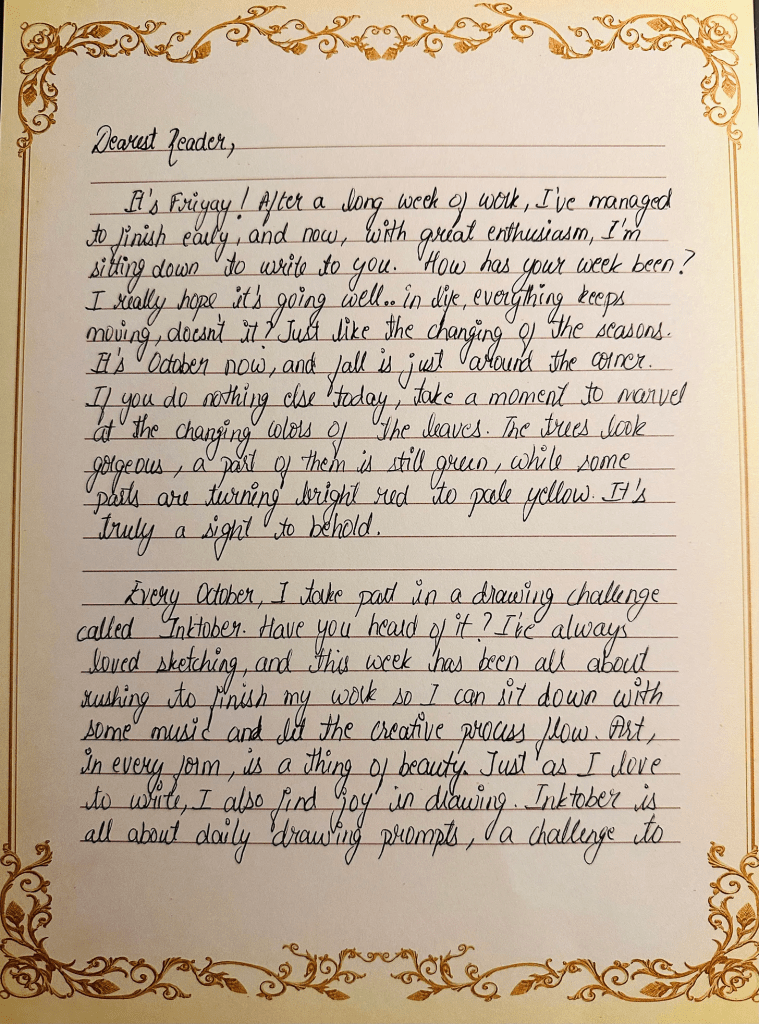 Dearest Reader,
It's Friyay! After a long week of work, I've managed
to finish early, and now, with great enthusiasm, I'm
sitting down to write to you. How has your week been?
I really hope it's going well.. in life, everything keeps
moving, doesn't it? Just like the changing of the seasons.
It's October now, and fall is just around the corner.
If you do nothing else today, take a moment to marvel
at the changing colors of the leaves. The trees look
gorgeous, a part of them is still green, while some
parts are turning bright red to pale yellow. It's
truly a sight to behold.
Every October, I take part in a drawing challenge
called Inktober. Have you heard of it? I've always
loved sketching, and this week has been all about
rushing to finish my work so I can sit down with
some music and let the creative process flow. Art,
in every form, is a thing of beauty. Just as I love
to write, I also find joy in drawing. Inktober is
all about daily drawing prompts, a challenge to